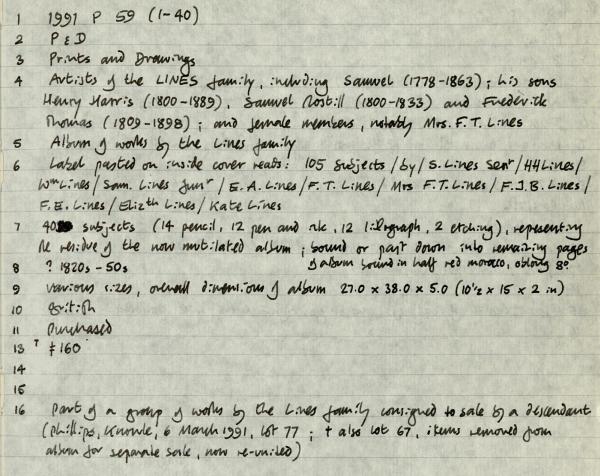 1 1991 P 59 (1-40)
2 P & D
3 Prints and Drawings
4 Artists of the LINES family, including Samuel (1778-1863); his sons
Henry Harris (1800-1889), Samuel Rostill (1800-1833) and Frederick
Thomas (1809-1898); and female members, notably Mrs. F.T. Lines
5 Album of works by the Lines family
6 Label pasted on inside cover reads: 105 Subjects / by / S. Lines Senr / HH Lines /
Wm Lines / Sam. Lines Junr / E.A. Lines / F.T. Lines / Mrs F.T. Lines / F.J.B. Lines /
F.E. Lines / Elizth Lines / Kate Lines
7 40 subjects (14 pencil, 12 pen and ink, 12 lithograph, 2 etching), representing
the residue of the now mutilated album; bound or past down into remaining pages
of album bound in half red morocco, oblong 8o
8 ? 1820s - 50s
9 various sizes, overall dimensions of album 27.0 x 38.0 x 5.0 (10½ x 15 x 2 in)
10 British
11 Purchased
13 † £160
14
15
16 Part of a group of works by the Lines family consigned to sale by a descendant
(Phillips, Knowle, 6 March 1991, lot 77; † also lot 67, items removed from
album for separate sale, now re-united)